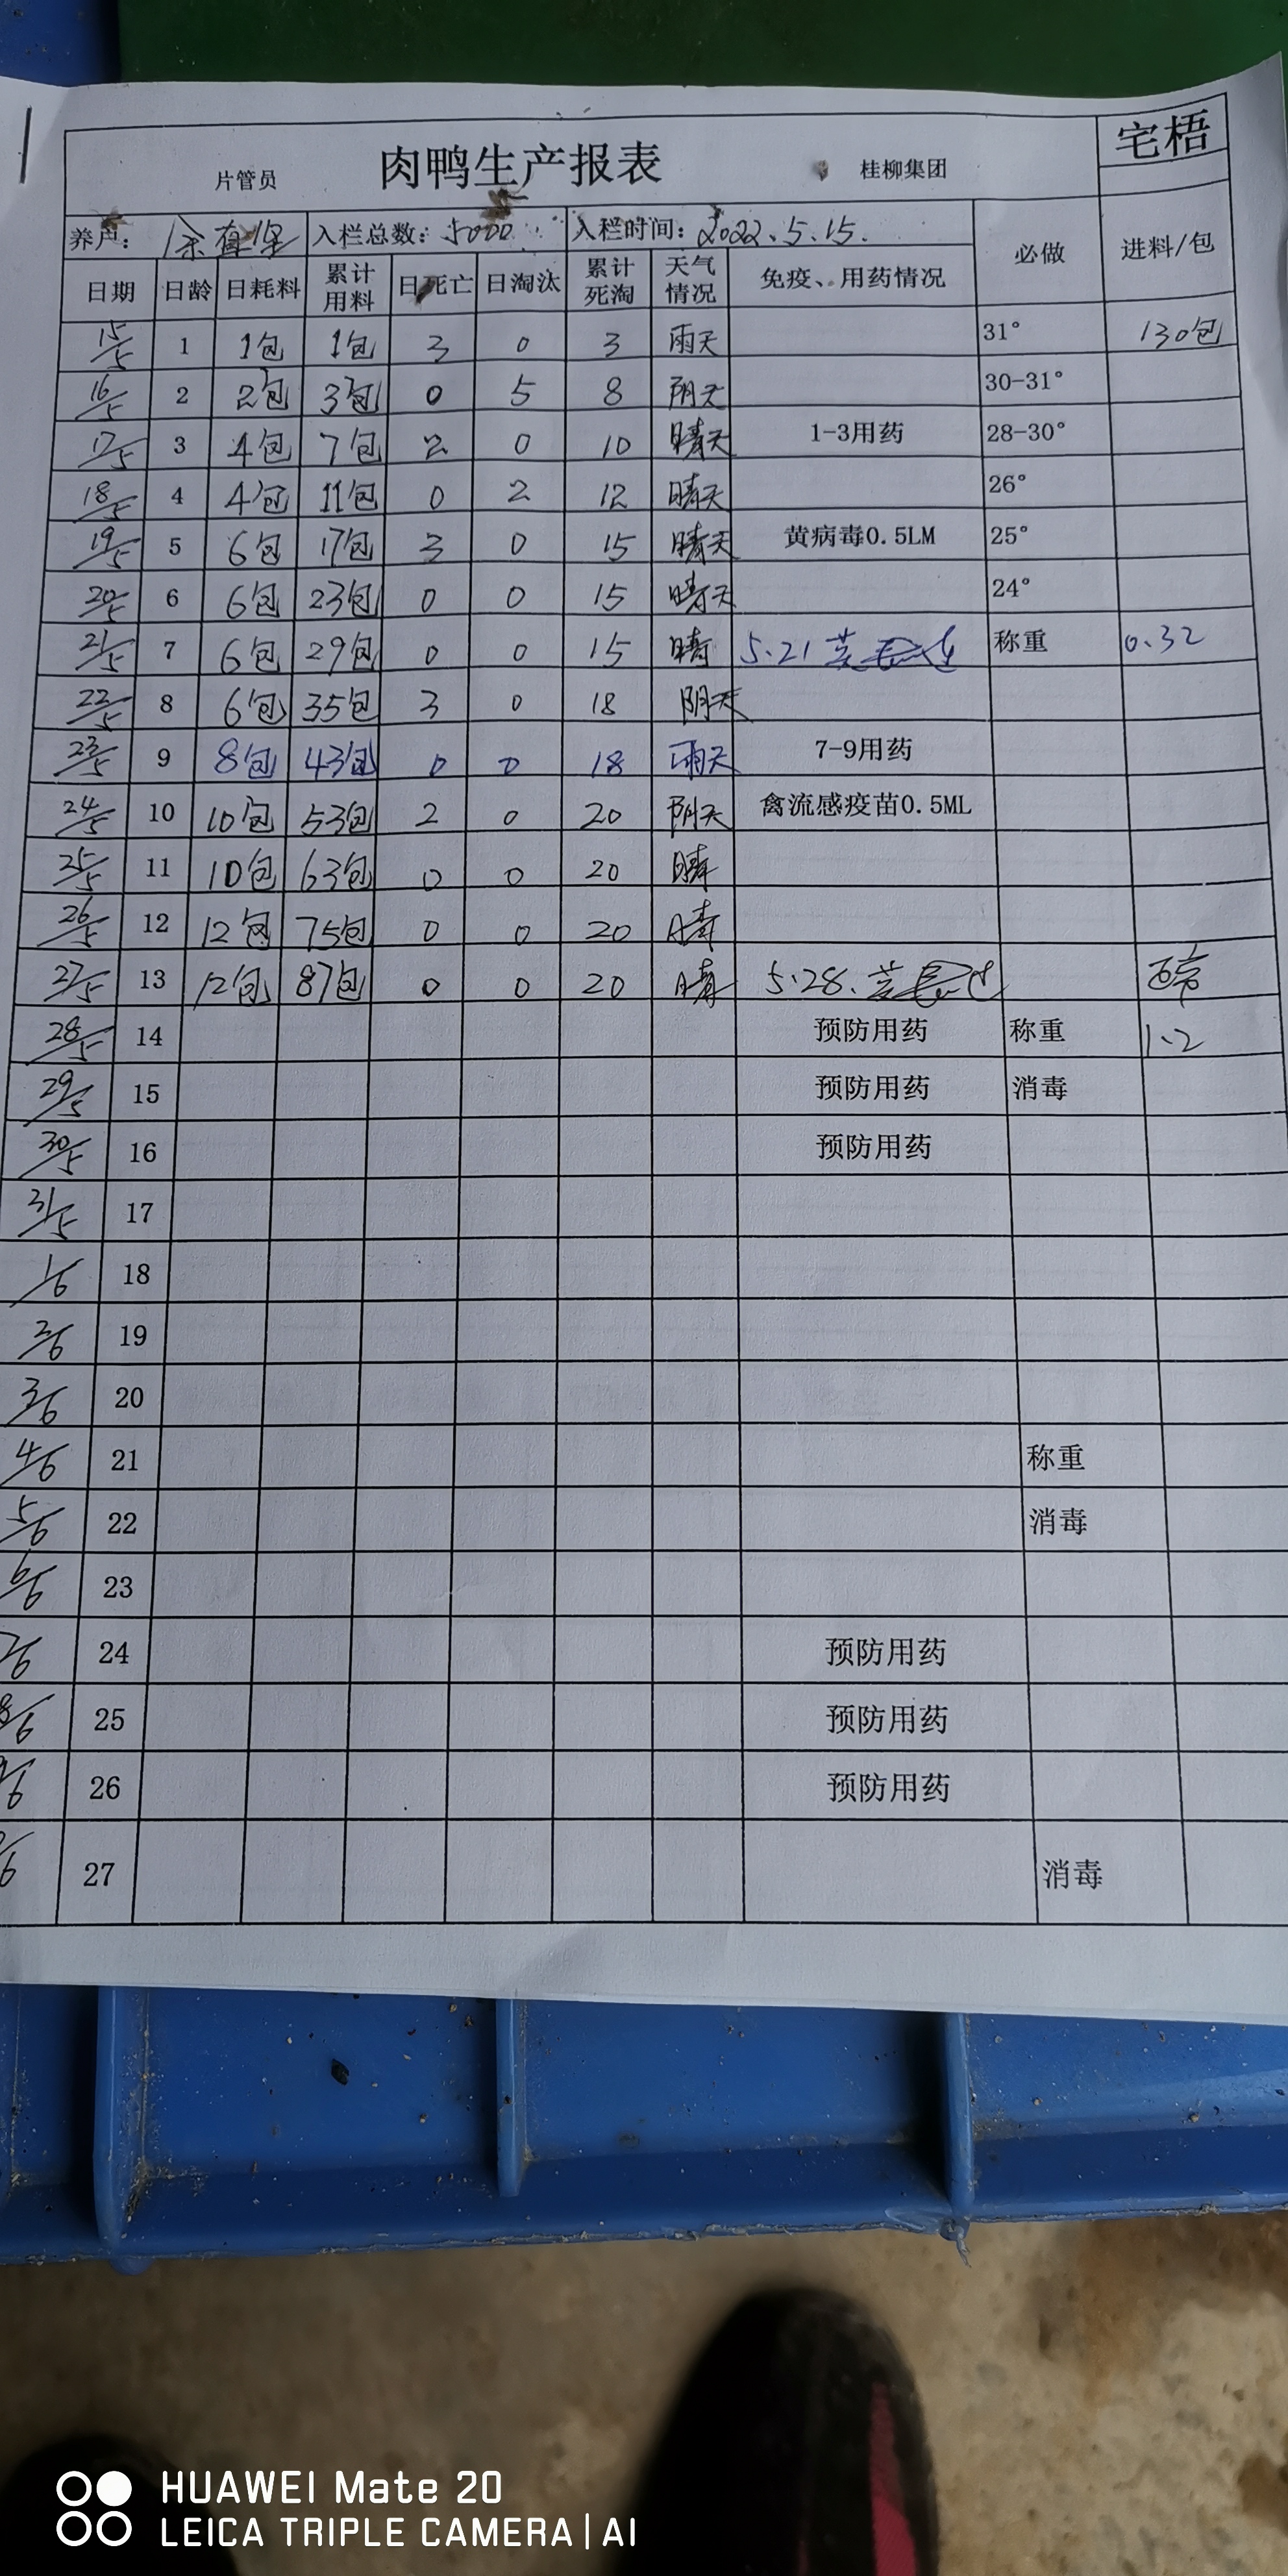 宅梧
片管员 肉鸭生产报表 桂柳集团
养户： 入栏总数：5000 入栏时间：2022.5.15.
日期 日龄 日耗料 累计用料 日死亡 日淘汰 累计死淘 天气情况 免疫、用药情况 必做 进料/包
15/5 1 1包 1包 3 0 3 雨天 31° 130包
16/5 2 2包 3包 0 5 8 阴天 30-31°
17/5 3 4包 7包 2 0 10 晴天 1-3用药 28-30°
18/5 4 4包 11包 0 2 12 晴天 26°
19/5 5 6包 17包 3 0 15 晴天 黄病毒0.5LM 25°
20/5 6 6包 23包 0 0 15 晴天 24°
21/5 7 6包 29包 0 0 15 晴 5.21 称重 0.32
22/5 8 6包 35包 3 0 18 阴天
23/5 9 8包 43包 0 0 18 雨天 7-9用药
24/5 10 10包 53包 2 0 20 阴天 禽流感疫苗0.5ML
25/5 11 10包 63包 0 0 20 晴
26/5 12 12包 75包 0 0 20 晴
27/5 13 12包 87包 0 0 20 晴 5.28.
28/5 14 预防用药 称重 1.2
29/5 15 预防用药 消毒
30/5 16 预防用药
31/5 17
1/6 18
2/6 19
3/6 20
4/6 21 称重
5/6 22 消毒
6/6 23
7/6 24 预防用药
8/6 25 预防用药
9/6 26 预防用药
27 消毒
HUAWEI Mate 20
LEICA TRIPLE CAMERA | AI